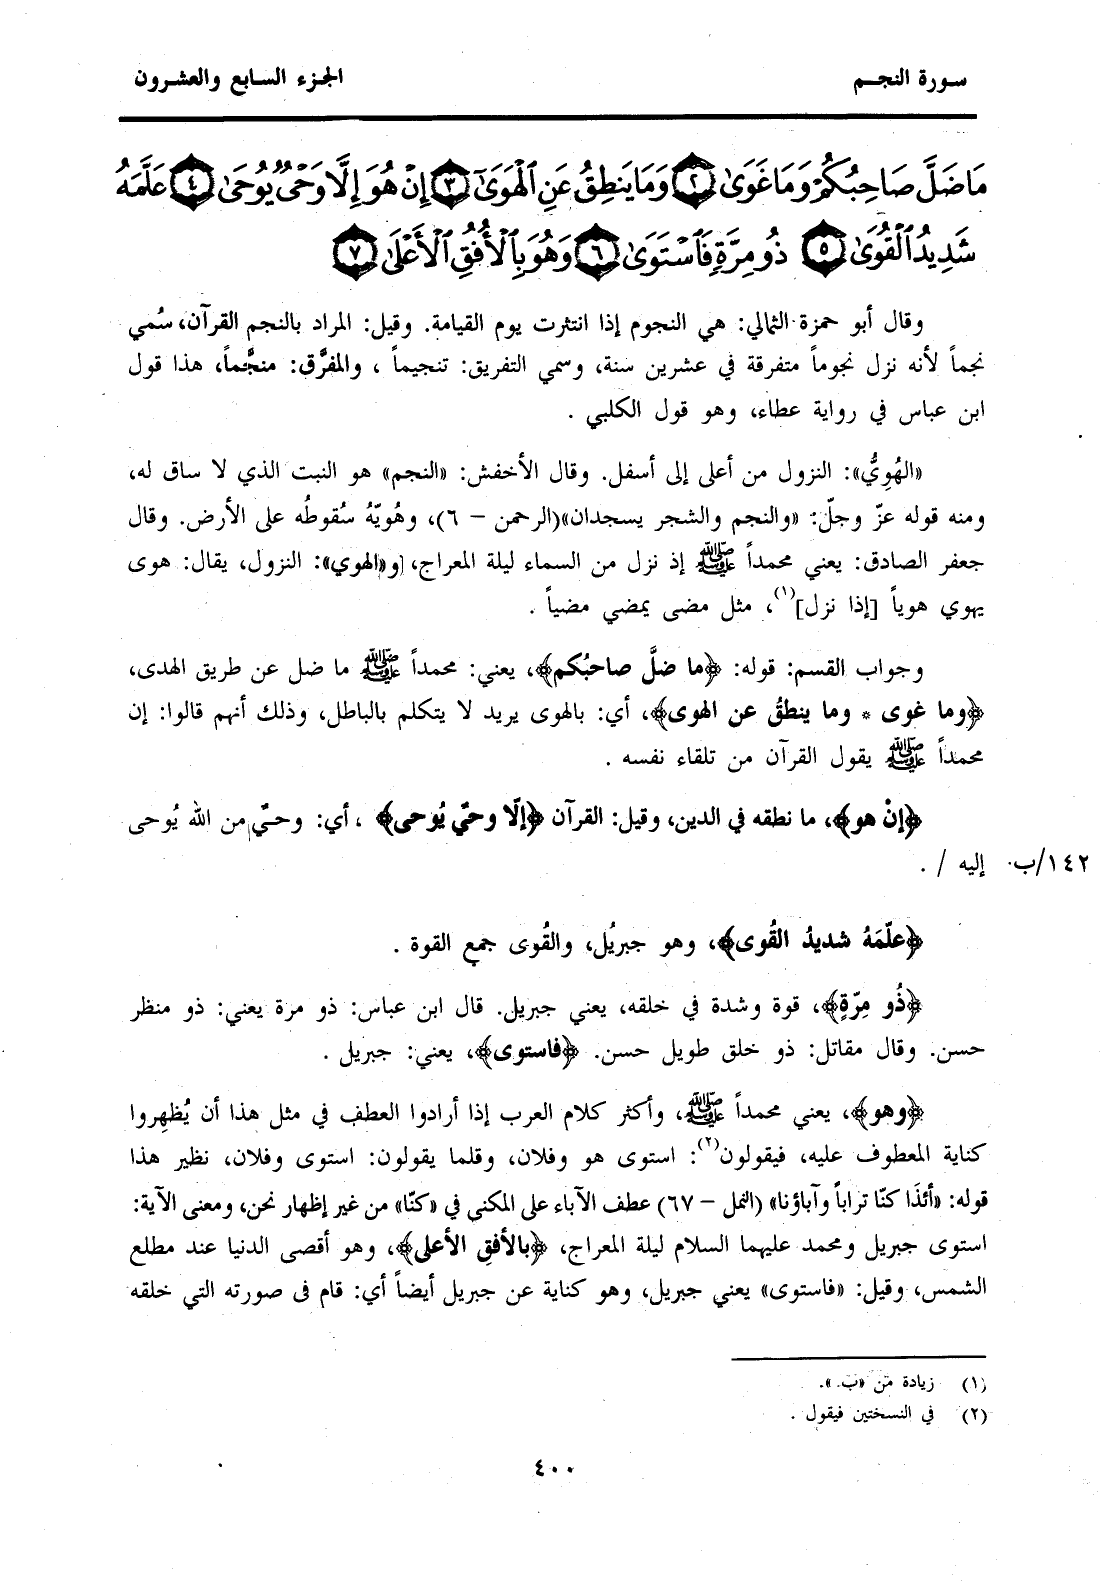 سورة النجم
الجزء السابع والعشرون
مَا ضَلَّ صَاحِبُكُمْ وَمَا غَوَىٰ ﴿٢﴾ وَمَا يَنطِقُ عَنِ ٱلْهَوَىٰٓ ﴿٣﴾ إِنْ هُوَ إِلَّا وَحْىٌ يُوحَىٰ ﴿٤﴾ عَلَّمَهُۥ
شَدِيدُ ٱلْقُوَىٰ ﴿٥﴾ ذُو مِرَّةٍ فَٱسْتَوَىٰ ﴿٦﴾ وَهُوَ بِٱلْأُفُقِ ٱلْأَعْلَىٰ ﴿٧﴾
وقال أبو حمزة الثمالي: هي النجوم إذا انتثرت يوم القيامة. وقيل: المراد بالنجم القرآن، سُمي
نجماً لأنه نزل نجوماً متفرقة في عشرين سنة، وسمي التفريق: تنجيماً ، والمفرَّق: منجَّماً، هذا قول
ابن عباس في رواية عطاء، وهو قول الكلبي .
«الهُوِيُّ»: النزول من أعلى إلى أسفل. وقال الأخفش: «النجم» هو النبت الذي لا ساق له،
ومنه قوله عزّ وجلّ: «والنجم والشجر يسجدان»(الرحمن – ٦)، وهُويّهُ سُقوطُه على الأرض. وقال
جعفر الصادق: يعني محمداً ﷺ إذ نزل من السماء ليلة المعراج، و«الهوي»: النزول، يقال: هوى
يهوي هوياً [إذا نزل](١)، مثل مضى يمضي مضياً .
وجواب القسم: قوله: ﴿ما ضلَّ صاحبُكم﴾، يعني: محمداً ﷺ ما ضل عن طريق الهدى،
﴿وما غوى * وما ينطقُ عن الهوى﴾، أي: بالهوى يريد لا يتكلم بالباطل، وذلك أنهم قالوا: إن
محمداً ﷺ يقول القرآن من تلقاء نفسه .
﴿إنْ هو﴾، ما نطقه في الدين، وقيل: القرآن ﴿إلّا وحيٌ يُوحى﴾ ، أي: وحيٌ من الله يُوحى
إليه / . ١٤٢/ب
﴿علّمَهُ شديدُ القُوى﴾، وهو جبريُل، والقُوى جمع القوة .
﴿ذُو مِرّةٍ﴾، قوة وشدة في خلقه، يعني جبريل. قال ابن عباس: ذو مرة يعني: ذو منظر
حسن. وقال مقاتل: ذو خلق طويل حسن. ﴿فاستوى﴾، يعني: جبريل .
﴿وهو﴾، يعني محمداً ﷺ، وأكثر كلام العرب إذا أرادوا العطف في مثل هذا أن يُظهِروا
كناية المعطوف عليه، فيقولون(٢): استوى هو وفلان، وقلما يقولون: استوى وفلان، نظير هذا
قوله: «أئذَا كنّا تراباً وآباؤنا» (النمل – ٦٧) عطف الآباء على المكنى في «كنّا» من غير إظهار نحن، ومعنى الآية:
استوى جبريل ومحمد عليهما السلام ليلة المعراج، ﴿بالأفقِ الأعلى﴾، وهو أقصى الدنيا عند مطلع
الشمس، وقيل: «فاستوى» يعني جبريل، وهو كناية عن جبريل أيضاً أي: قام في صورته التي خلقه
(١) زيادة من «ب.».
(٢) في النسختين فيقول .
٤٠٠